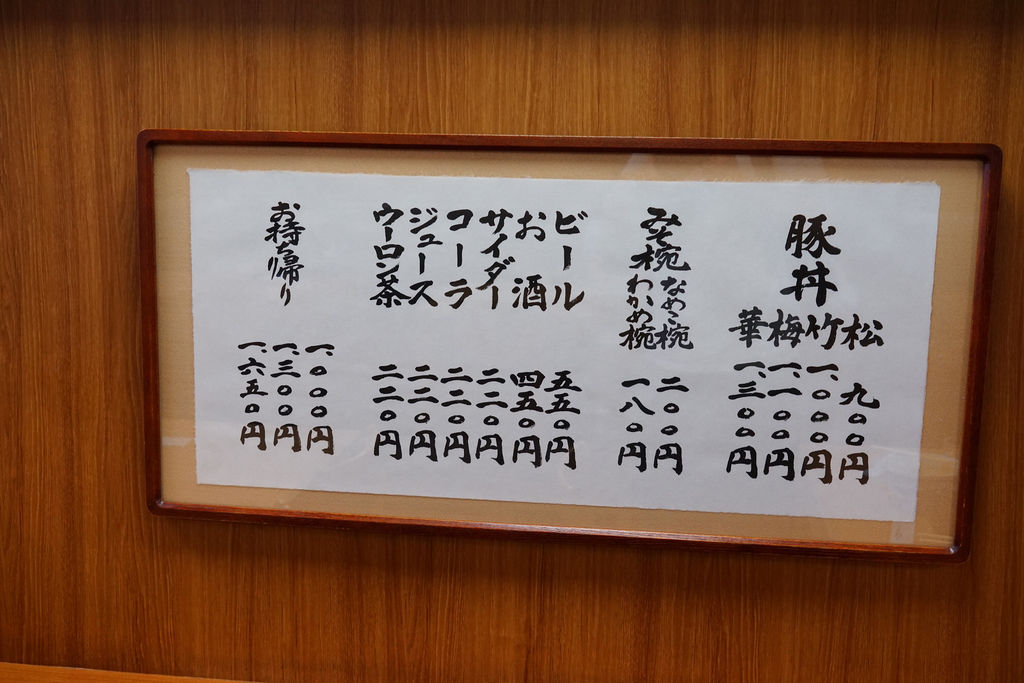 豚丼
松 九〇〇円
竹 一、〇〇〇円
梅 一、一〇〇円
華 一、三〇〇円
みそ椀
なめこ椀 二〇〇円
わかめ椀 一八〇円
ビール 五五〇円
お酒 四五〇円
サイダー 二二〇円
コーラ 二二〇円
ジュース 二二〇円
ウーロン茶 二二〇円
お持ち帰り
一、〇〇〇円
一、三〇〇円
一、六五〇円